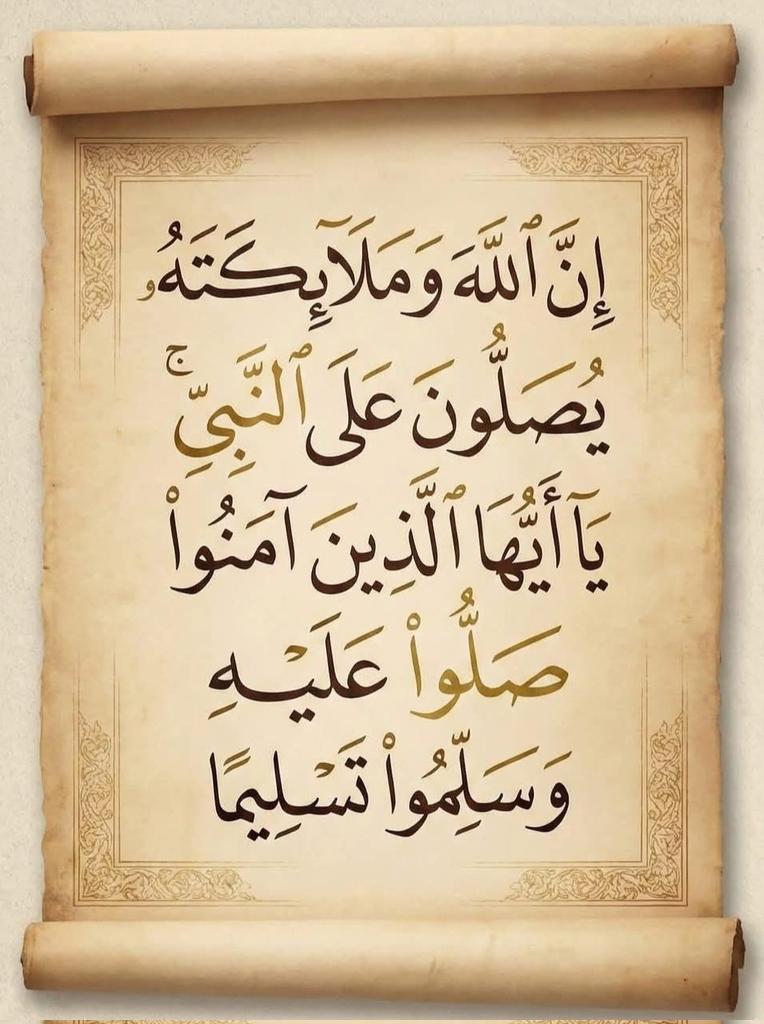 إِنَّ ٱللَّهَ وَمَلَآئِكَتَهُۥ
يُصَلُّونَ عَلَى ٱلنَّبِىِّ ۚ
يَآ أَيُّهَا ٱلَّذِينَ آمَنُوا۟
صَلُّوا۟ عَلَيْهِ
وَسَلِّمُوا۟ تَسْلِيمًا